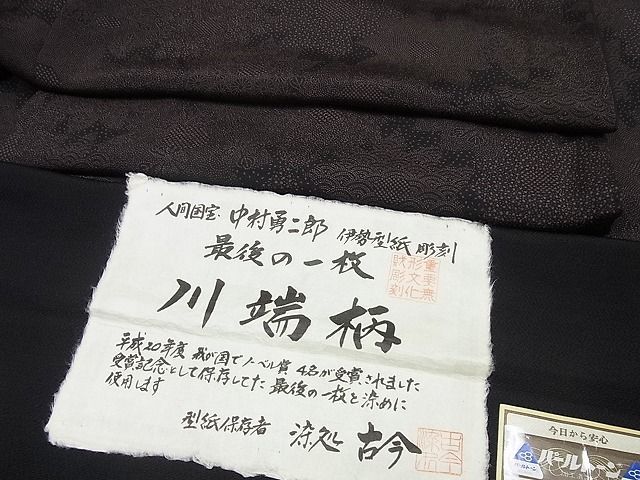 人間国宝 中村勇二郎 伊勢型紙 彫刻
最後の一枚
重要無
形文化
財彫刻
川端柄
平成20年度 我が国でノーベル賞 4名が受賞されました
受賞記念として保存してた 最後の一枚を染めに
使用します
型紙保存者 染処 古今
今日から安心
パールトーン
パールトーン